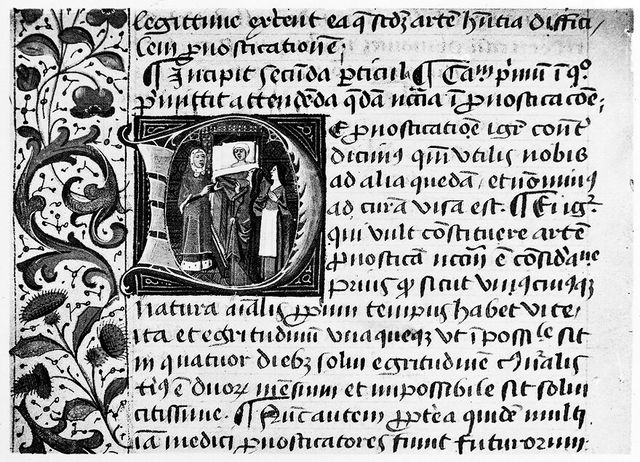 legittime exercent ea q̃ scdz artē hñtia diffici
lem p̱nosticationē;
¶ Incipit secūda p̱ticula ¶ Cam p̱mū ĩ qº
p̱mittit attendēda q̄dā nc̄ia ĩ p̱nosticacōe;
DE p̱nosticatiōe igr̃ cont̃
dicimꝰ qm̃ utilis nobis
ad alia quedam, et nō minꝰ
ad curā visa est. ¶ Ei igr̃
qui vult cōstituere artē
p̱nosticā nccm̃ ē cōsid̃are
prius q̱ sicut vniꝰcuiꝰq̨
natura aīalis p̱rium tempus habet vite,
ita et egritudinū vna queq̨ ut ĩpossi^le sit
in quatuor diebz solui egritudinē
ē duorz mēsium et impossibile sit solui
citissime. ¶ Nūc autem p̱pt̃ea quidē multi
iā medici p̱nosticatores fiunt futurorum.